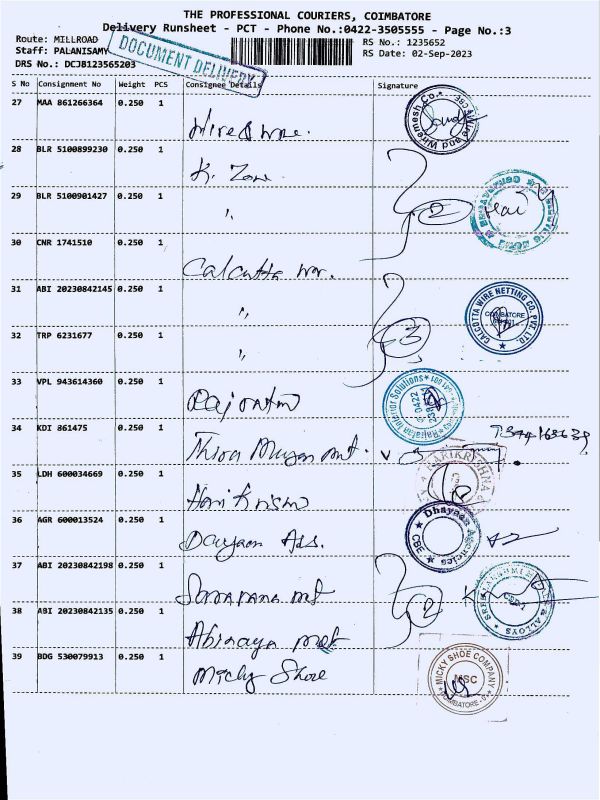 THE PROFESSIONAL COURIERS, COIMBATORE
Delivery Runsheet - PCT - Phone No.:0422-3505555 - Page No.:3
Route: MILLROAD
RS No.: 1235652
Staff: PALANISAMY
RS Date: 02-Sep-2023
DRS No.: DCJB123565203
DOCUMENT DELIVERY
S No Consignment No Weight PCS Consignee Details Signature
27 MAA 861266364 0.250 1 Wire & Wire.
28 BLR 5100899230 0.250 1 K. Zone
29 BLR 5100901427 0.250 1 "
2
30 CNR 1741510 0.250 1 Calcutta wr.
31 ABI 20230842145 0.250 1 "
CALCUTTA WIRE NETTING CO. PVT. LTD.
COIMBATORE
32 TRP 6231677 0.250 1 "
3
33 VPL 943614360 0.250 1 Rajratan
Rajratan Interior Solutions
0422
34 KDI 861475 0.250 1 Thira Murugan mt.
35 LDH 600034669 0.250 1 Hari Krisna
HARIKRISHNA
36 AGR 600013524 0.250 1 Dayaan Ass.
Dhayaan Agencies
CBE
37 ABI 20230842198 0.250 1 mt
38 ABI 20230842135 0.250 1 Abinaya met
2
& ALLOYS
39 BDG 530079913 0.250 1 Micky Shoe
MICKY SHOE COMPANY
MSC
COIMBATORE